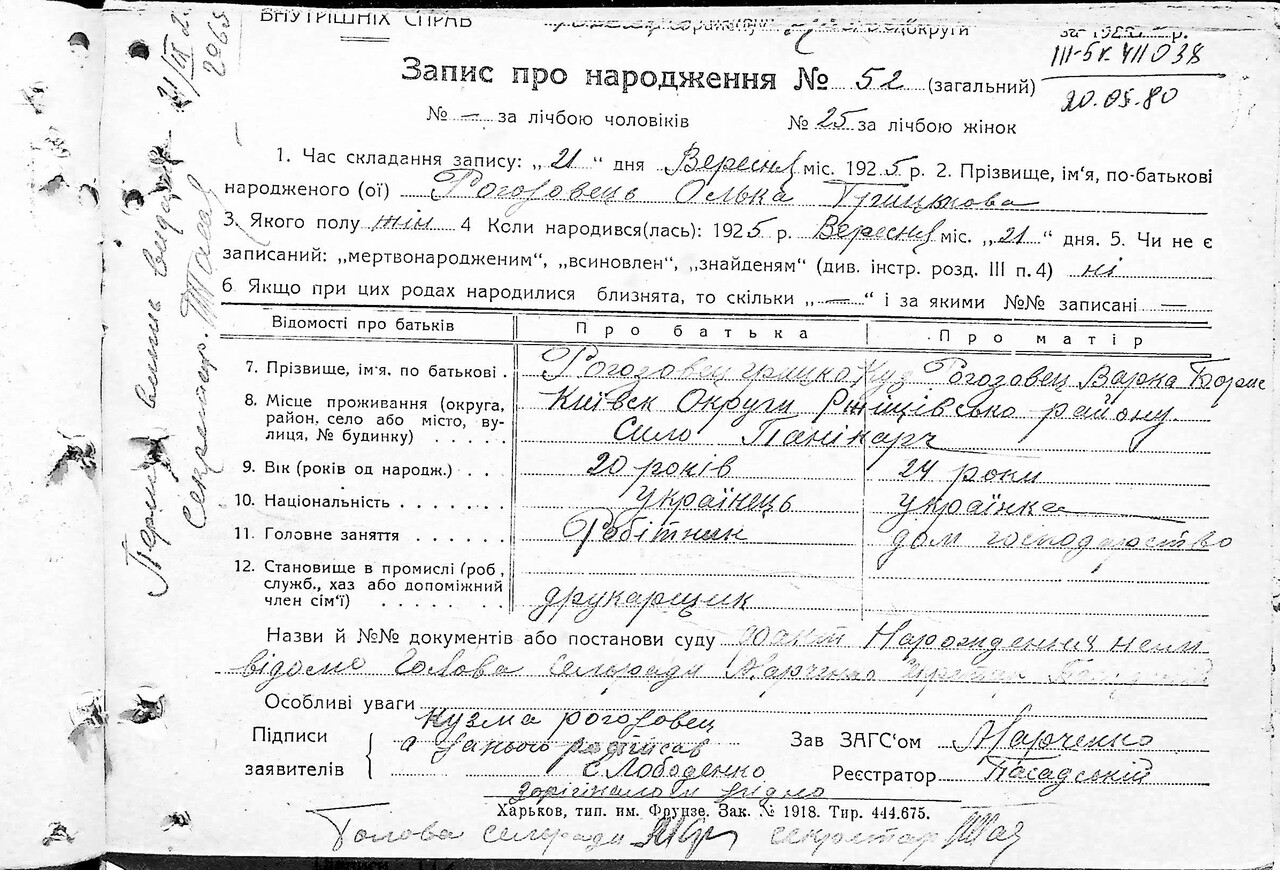 ВНУТРІШНІХ СПРАВ
III-БК 411038
20.05.80
Запис про народження № 52 (загальний)
№ — за лічбою чоловіків № 25 за лічбою жінок
1. Час складання запису: „ 21 “ дня Вересня міс. 1925 р. 2. Прізвище, ім'я, по-батькові
народженого (ої) Рогозовець Олька Грицькова
3. Якого полу жін 4 Коли народився(лась): 1925 р. Вересня міс. „ 21 “ дня. 5. Чи не є
записаний: „мертвонародженим“, „всиновлен“, „знайденям“ (див. інстр. розд. III п. 4) ні
6 Якщо при цих родах народилися близнята, то скільки „ — “ і за якими №№ записані —
Відомості про батьків Про батька Про матір
7. Прізвище, ім'я. по батькові . Рогозовец Грицко Куз Рогозовец Варка Борис
8. Місце проживання (округа, Київск Округи Ржіщівсько району
район, село або місто, ву-
лиця, № будинку) . . . . . Сило Панікарч
9. Вік (років од народж.) . . 20 років 24 роки
10. Національність . . . . . . українець українка
11. Головне заняття . . . . . . Робітник дом господарство
12. Становище в промислі (роб,
служб., хаз або допоміжний
член сім'ї) . . . . . . . друкарщик
Назви й №№ документів або постанови суду факт Народження неим
відомо Голова Сельради Марченко
Особливі уваги
Кузма рогозовец
Підписи
а за нього розписав Зав ЗАГС'ом Марченко
заявителів
С Лободенко Реєстратор Посадський
Харьков, тип. им. Фрунзе. Зак. № 1918. Тир. 444.675.
Голова сельради секретар